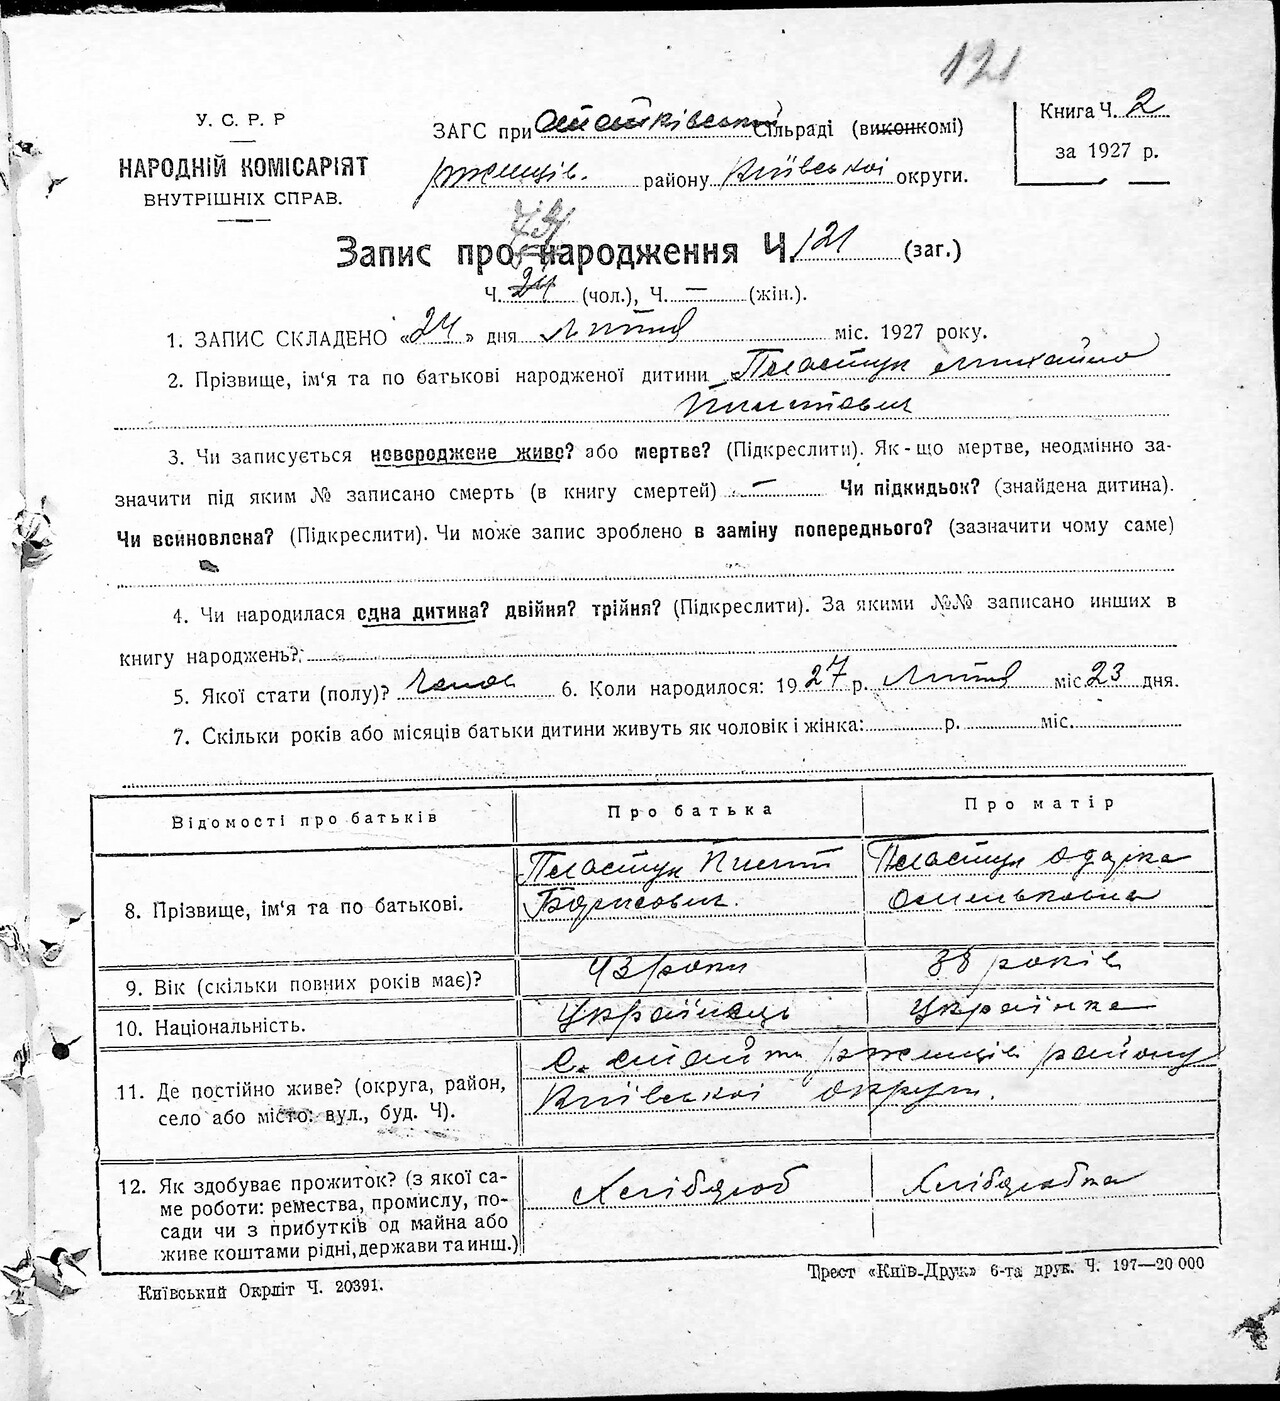 121
У. С. Р. Р
НАРОДНІЙ КОМІСАРІЯТ
ВНУТРІШНІХ СПРАВ.
ЗАГС при Стайківській Сільраді (виконкомі)
ржищів. району Київської округи.
Книга Ч. 2
за 1927 р.
Запис про народження Ч. 121 (заг.)
Ч. 24 (чол.), Ч. — (жін.).
1. ЗАПИС СКЛАДЕНО «24» дня Лютня міс. 1927 року.
2. Прізвище, ім'я та по батькові народженої дитини Пластун Михайло
Пилипович
3. Чи записується новороджене живе? або мертве? (Підкреслити). Як-що мертве, неодмінно за-
значити під яким № записано смерть (в книгу смертей) — Чи підкидьок? (знайдена дитина).
Чи всиновлена? (Підкреслити). Чи може запис зроблено в заміну попереднього? (зазначити чому саме)
4. Чи народилася одна дитина? двійня? трійня? (Підкреслити). За якими №№ записано инших в
книгу народжень?
5. Якої стати (полу)? чолов 6. Коли народилося: 1927 р. Лютня міс. 23 дня.
7. Скільки років або місяців батьки дитини живуть як чоловік і жінка: р. міс.
Відомості про батьків
Про батька
Про матір
8. Прізвище, ім'я та по батькові.
Пластун Пилип
Борисович.
Пластун Одарка
Омельковна
9. Вік (скільки повних років має)?
43 роки
38 років
10. Національність.
Українець
Українка
11. Де постійно живе? (округа, район,
село або місто: вул., буд. Ч).
С. Стайки ржищів району
Київської округи.
12. Як здобуває прожиток? (з якої са-
ме роботи: ремества, промислу, по-
сади чи з прибутків од майна або
живе коштами рідні, держави та инш.)
Хлібороб
Хліборобка
Київський Окрліт Ч. 20391.
Трест «Київ-Друк» 6-та друк. Ч. 197—20 000